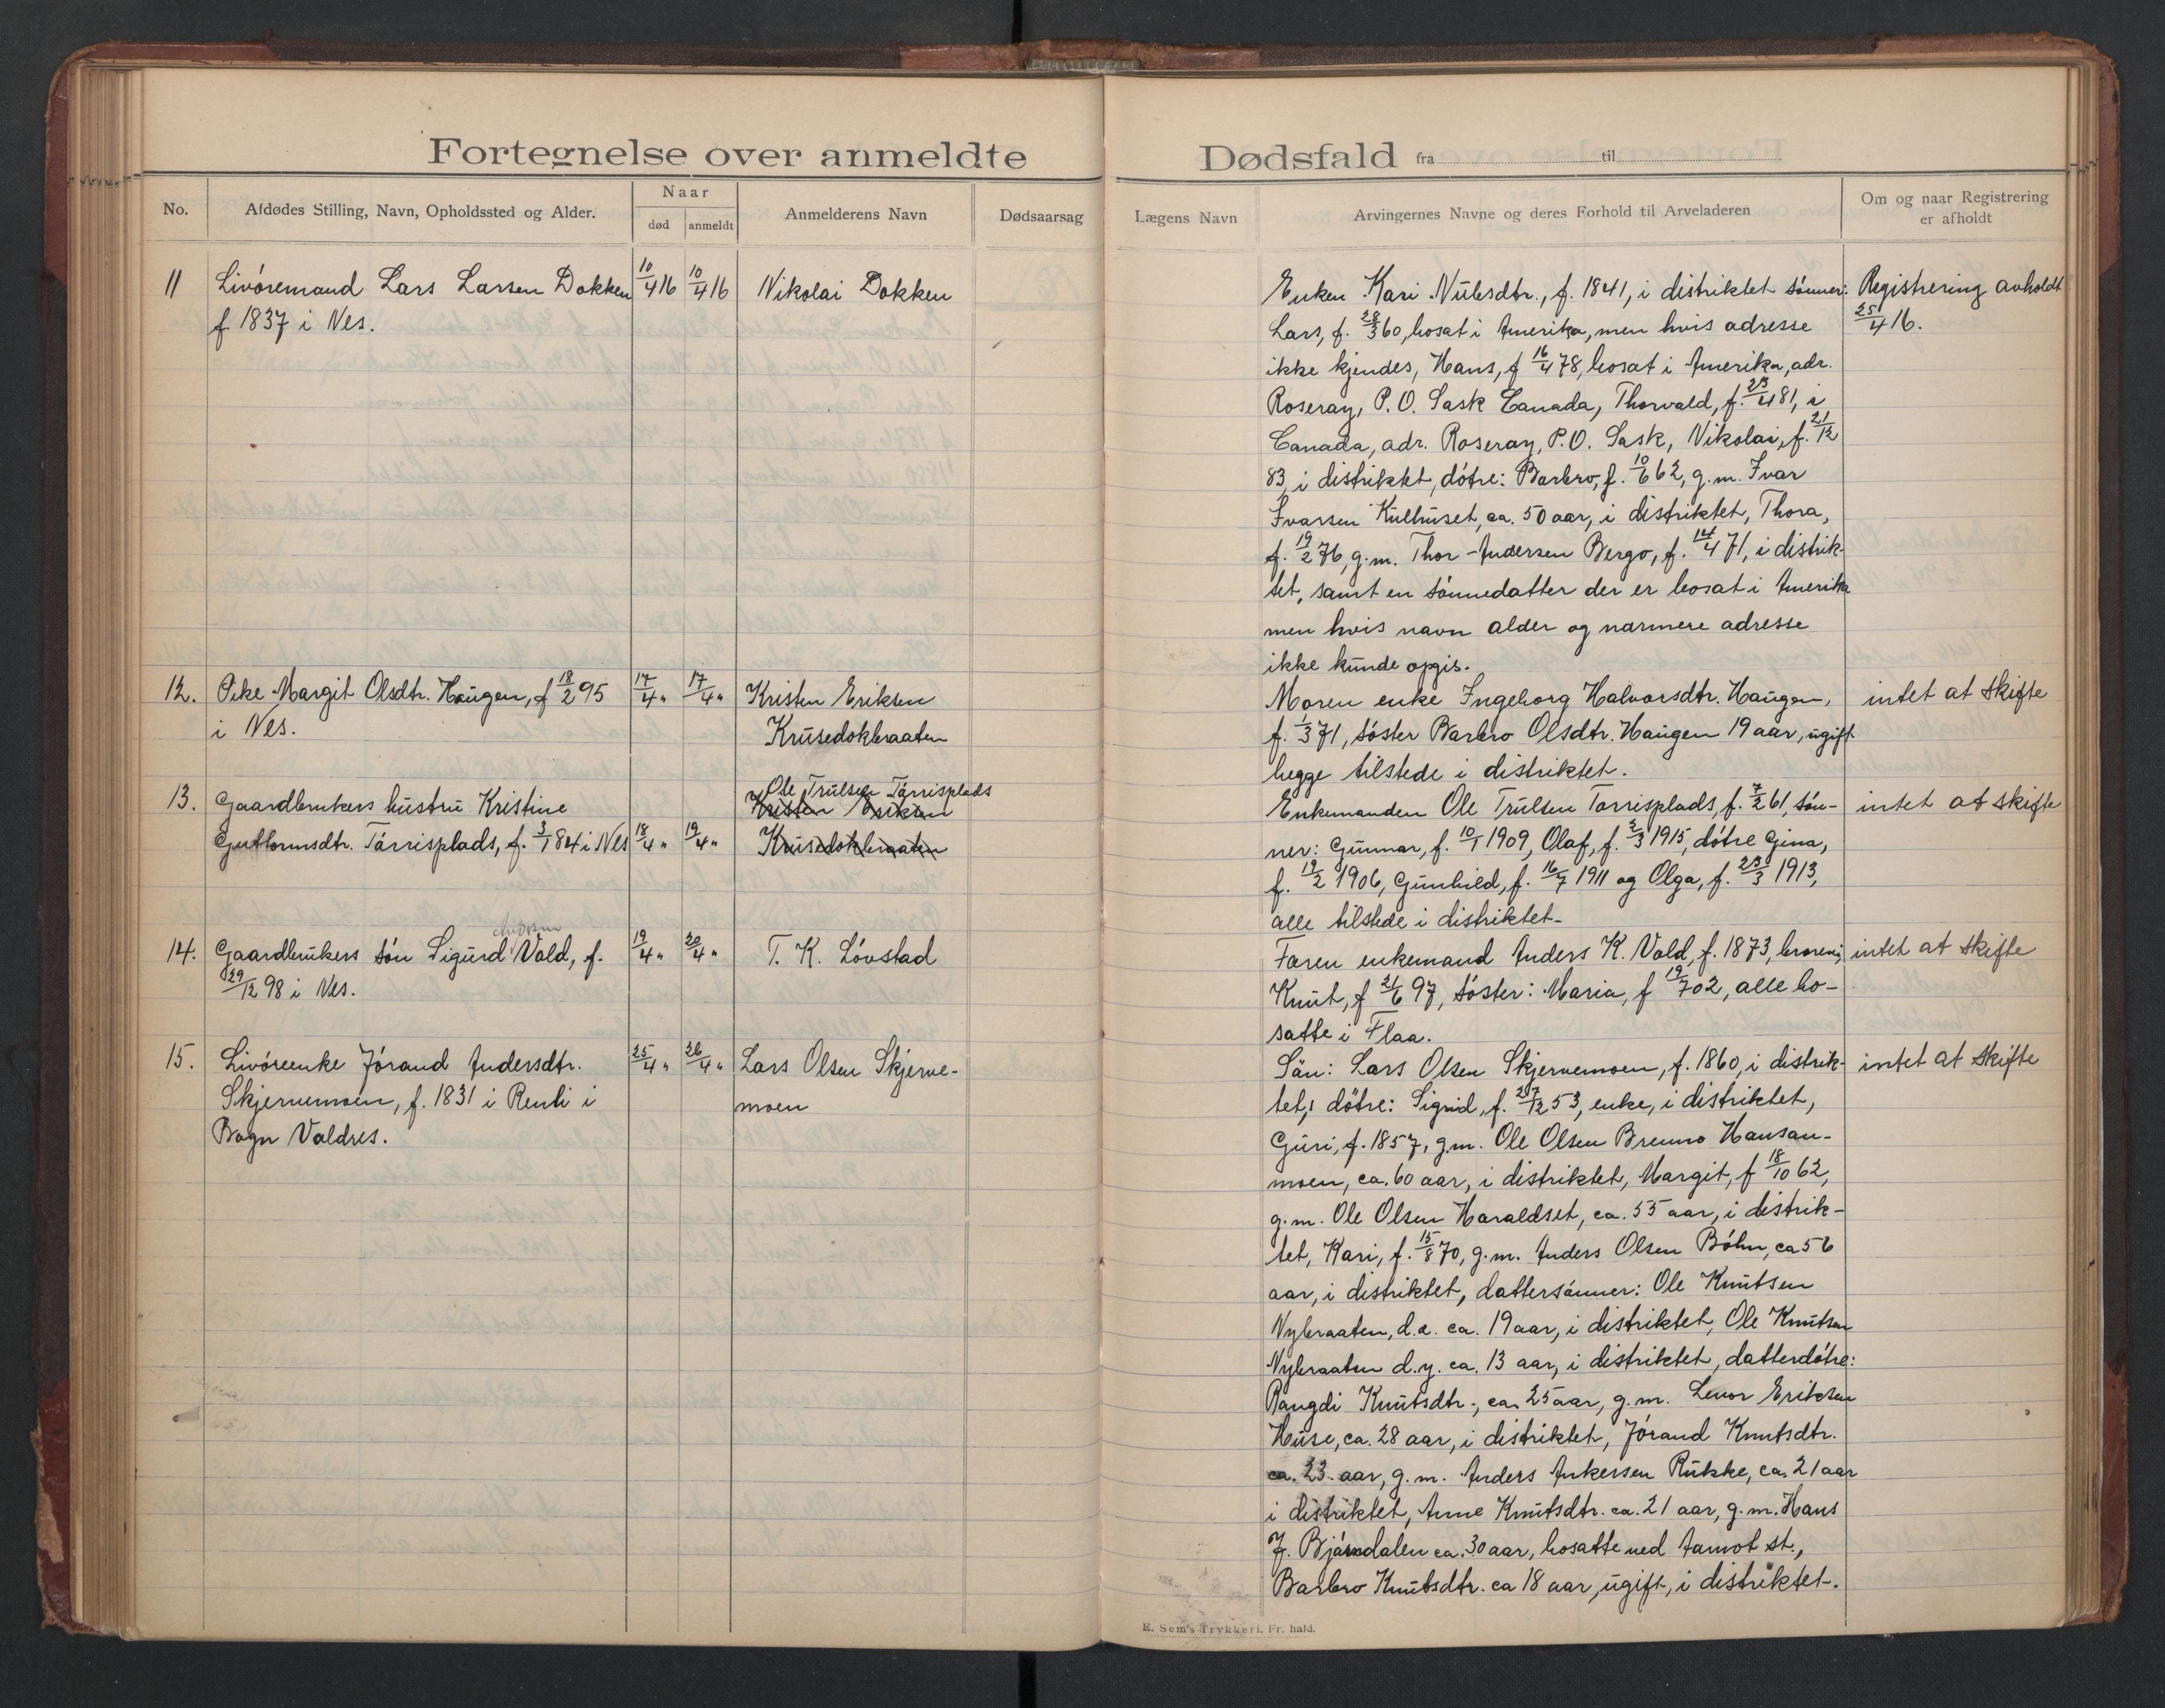 Fortegnelse over anmeldte Dødsfald fra til
No.
Afdødes Stilling, Navn, Opholdssted og Alder.
Naar
død
anmeldt
Anmelderens Navn
Dødsaarsag
Lægens Navn
Arvingernes Navne og deres Forhold til Arveladeren
Om og naar Registrering
er afholdt
11 Livöremand Lars Larsen Dokken 10/4 16 10/4 16 Nikolai Dokken
f. 1837 i Nes.
Enken Kari Nubsdtr., f. 1841, i distriktet sönner:
Lars, f. 28/3 60, bosat i Amerika, men hvis adresse
ikke kjendes, Hans, f 16/4 78, bosat i Amerika, adr.
Roseray, P.O. Sask Canada, Thorvald, f. 23/4 81, i
Canada, adr. Roseray, P.O. Sask, Nikolai, f. 21/12
83, i distriktet, dötre: Barbro, f. 10/6 62, g.m. Ivar
Ivarsen Kulhuset, ca. 50 aar, i distriktet, Thora,
f. 19/2 76, g.m. Thor Andersen Bergo, f. 14/4 71, i distrik-
tet, samt en sönnedatter der er bosat i Amerika
men hvis navn alder og nærmere adresse
ikke kunde opgis.
Registrering avholdt
25/4 16.
12. Pike Margit Olsdtr. Haugen, f 18/2 95 17/4 " 17/4 " Kristen Eriksen
i Nes. Krusedokbraaten
Moren enke Ingeborg Halvorsdtr. Haugen,
f. 1/3 71, söster Barbro Olsdtr. Haugen 19 aar, ugift
begge tilstede i distriktet.
intet at skifte
13. Gaardbrukers hustru Kristine Ole Trulsen Törrisplads
Kristen Eriksen
Guttormsdtr. Törrisplads, f. 3/1 84 i Nes 18/4 " 19/4 " Krusedokbraaten
Enkemanden Ole Trulsen Törrisplads, f. 7/2 61, sön-
ner: Gunnar, f. 10/1 1909, Olaf, f. 2/3 1915, dötre Gina,
f. 19/2 1906, Gunhild, f. 16/7 1911 og Olga, f. 23/3 1913,
alle tilstede i distriktet.
intet at skifte
Andersen
14. Gaardbrukers sön Sigurd Vold, f. 19/4 " 20/4 " T. K. Lövstad
29/12 98 i Nes.
Faren enkemand Anders K. Vold, f. 1873, broren:
Knut, f 21/6 97, söster: Maria, f 19/7 02, alle bo-
satte i Flaa.
intet at skifte
15. Livöreenke Jörand Andersdtr. 25/4 " 26/4 " Lars Olsen Skjerve-
Skjervemoen, f. 1831 i Renli i moen
Bagn Valdres.
Sön: Lars Olsen Skjervemoen, f. 1860, i distrik-
tet, dötre: Sigrid, f. 27/12 53, enke, i distriktet,
Guri, f. 1857, g.m. Ole Olsen Brenno Hansan-
moen, ca. 60 aar, i distriktet, Margit, f 18/10 62,
g.m. Ole Olsen Haraldset, ca. 55 aar, i distrik-
tet, Kari, f. 15/8 70, g.m. Anders Olsen Böhn, ca 56
aar, i distriktet, dattersönner: Ole Knutsen
Nybraaten, d.æ. ca. 19 aar, i distriktet, Ole Knutsen
Nybraaten d.y. ca. 13 aar, i distriktet, datterdötre:
Rangdi Knutsdtr., ca. 25 aar, g.m. Levor Eriksen
Huse, ca. 28 aar, i distriktet, Jörand Knutsdtr.
ca. 23 aar, g.m. Anders Ankersen Rukke, ca. 21 aar
i distriktet, Anne Knutsdtr. ca. 21 aar, g.m. Hans
J. Bjöindalen ca. 30 aar, bosatte ved Aamot st.,
Barbro Knutsdtr. ca 18 aar, ugift, i distriktet.
intet at skifte
E. Sem's Trykkeri. Fr. hald.